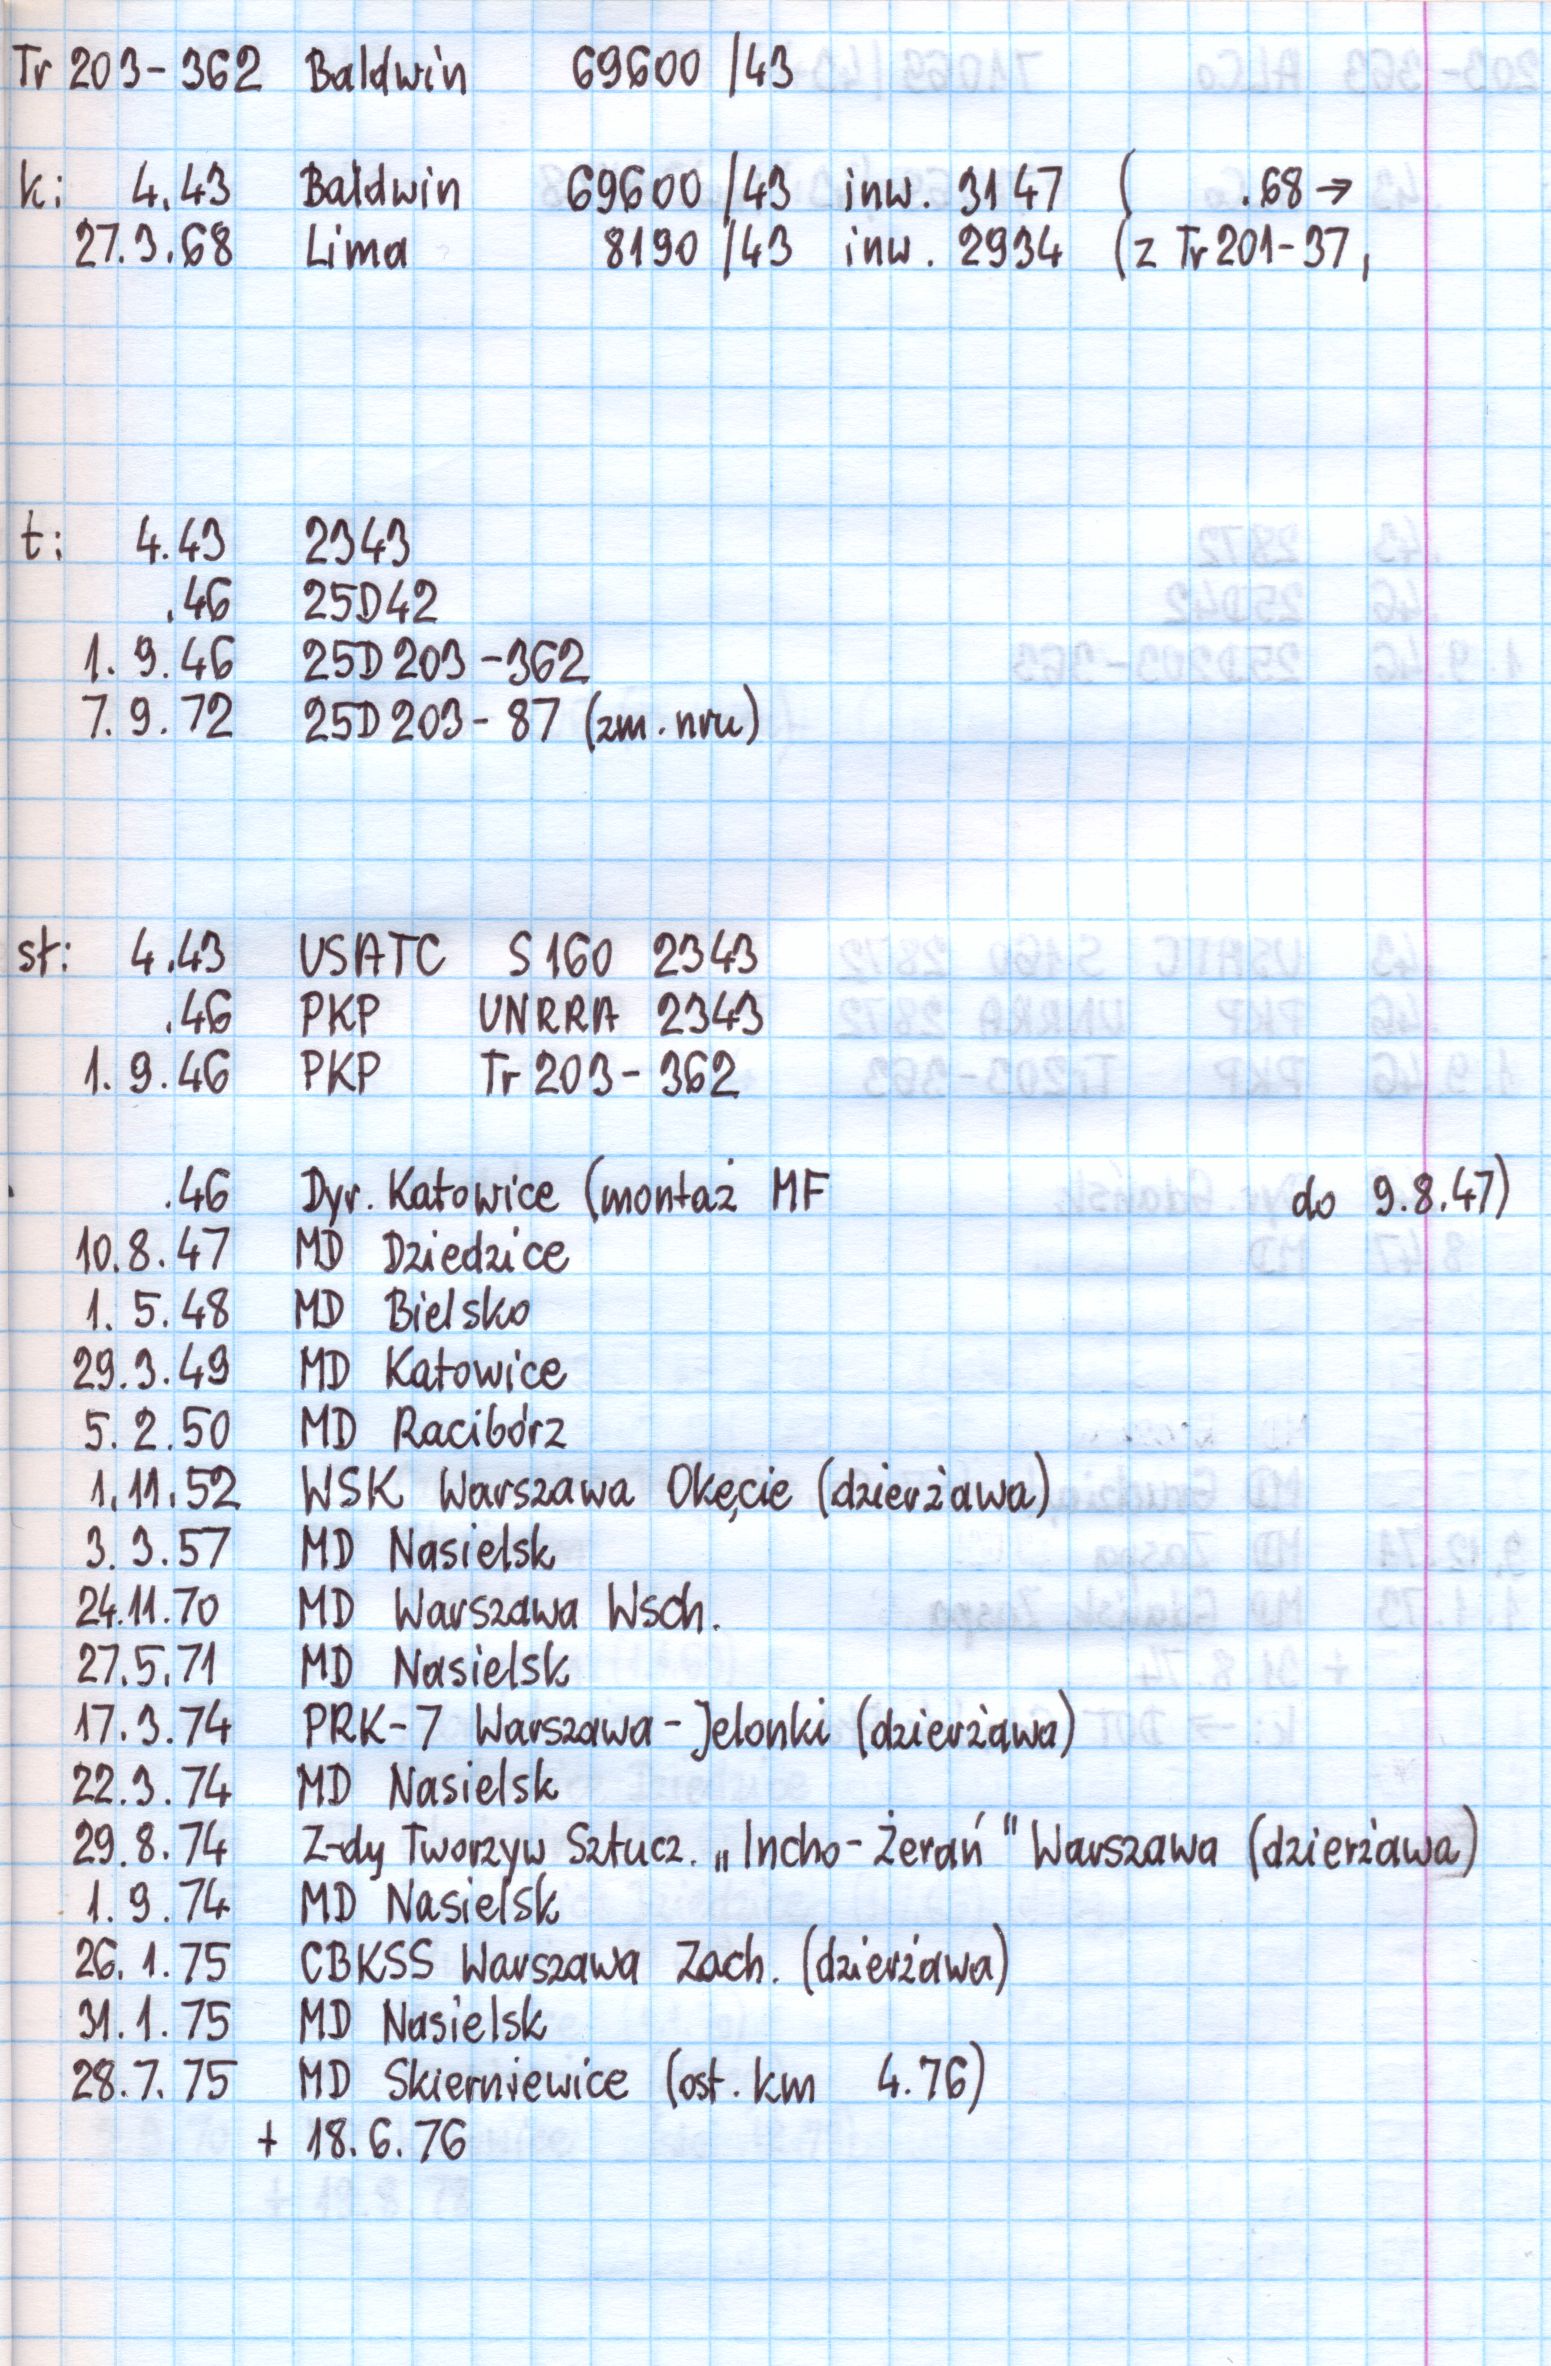 Tr 203-362 Baldwin 69600/43
k: 4.43 Baldwin 69600/43 inw. 3147 ( .68→
27.3.68 Lima 8190/43 inw. 2934 (z Tr 201-37,
t: 4.43 2343
.46 25D42
1.9.46 25D203-362
7.9.72 25D203-87 (zm. nru)
sł: 4.43 USATC S160 2343
.46 PKP UNRRA 2343
1.9.46 PKP Tr 203-362
.46 Dyr. Katowice (montaż MF do 9.8.47)
10.8.47 MD Dziedzice
1.5.48 MD Bielsko
29.3.49 MD Katowice
5.2.50 MD Racibórz
1.11.52 WSK Warszawa Okęcie (dzierżawa)
3.3.57 MD Nasielsk
24.11.70 MD Warszawa Wsch.
27.5.71 MD Nasielsk
17.3.74 PRK-7 Warszawa-Jelonki (dzierżawa)
22.3.74 MD Nasielsk
29.8.74 Z-dy Tworzyw Sztucz. „Incho-Żerań" Warszawa (dzierżawa)
1.9.74 MD Nasielsk
26.1.75 CBKSS Warszawa Zach. (dzierżawa)
31.1.75 MD Nasielsk
28.7.75 MD Skierniewice (ost. km 4.76)
+ 18.6.76